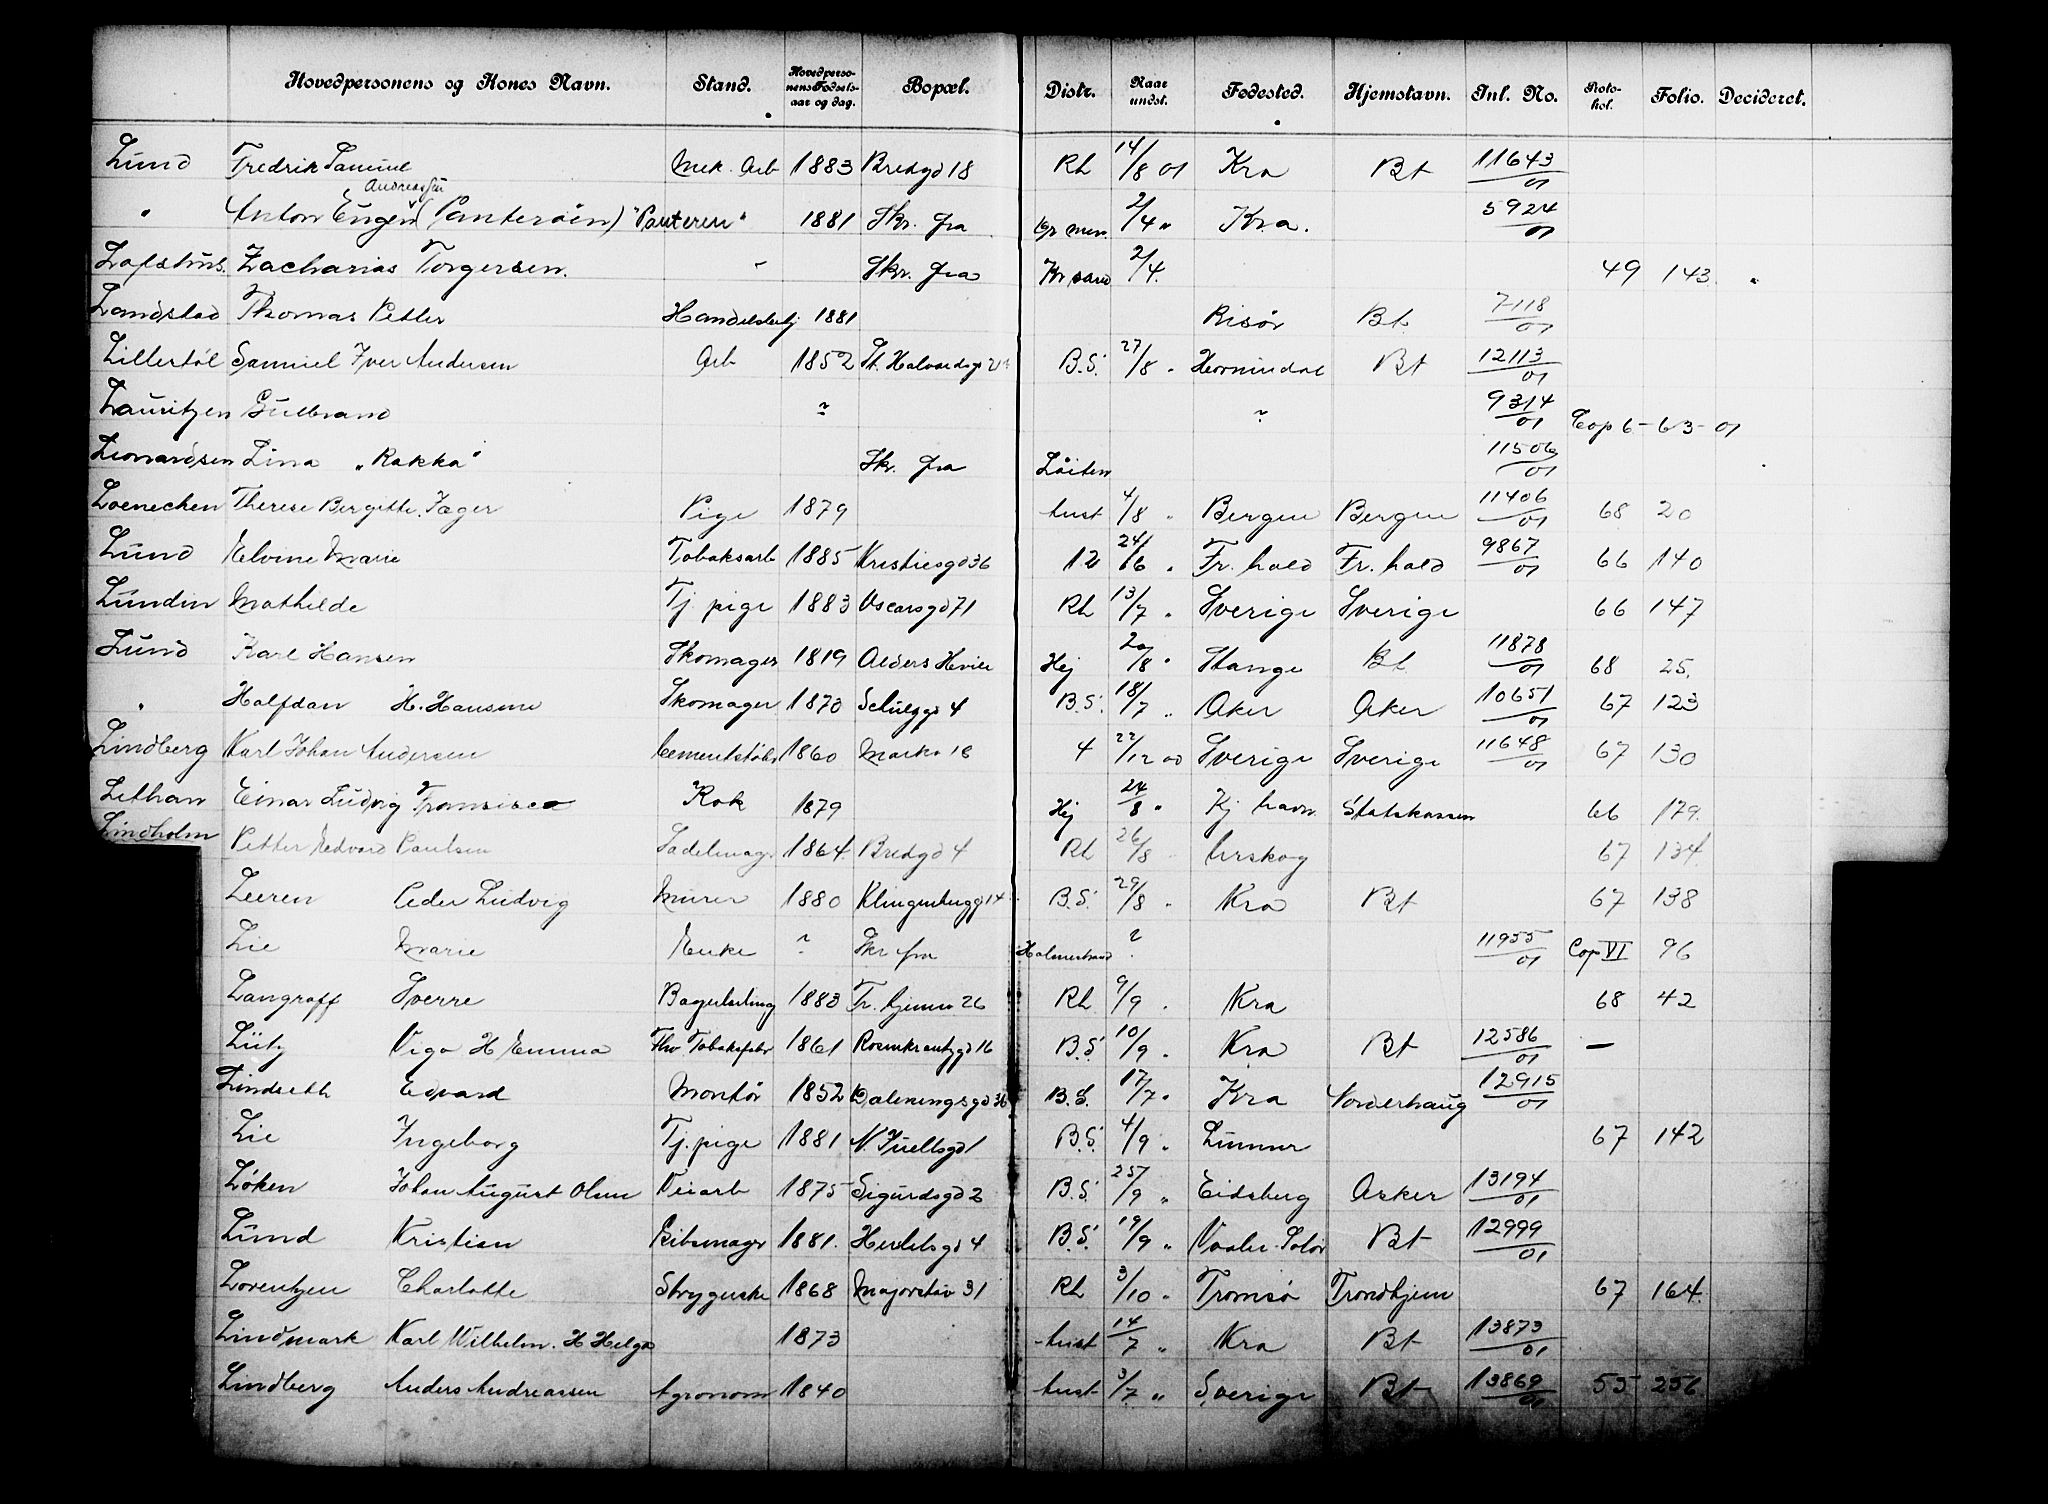 Hovedpersonens og Kones Navn. Stand. Hovedpersonens Fødselsaar og dag. Bopæl. Distr. Naar undst. Fødested. Hjemstavn. Inl. No. Protokol. Folio. Decideret.
Lund Fredrik Samuel Mek. Arb 1883 Bredgd 18 Rh 14/8 01 Kra Bt 11643/01
Andreassen
" Anton Eugen (Panterøien) "Panteren" 1881 Skr. fra 2/4 " Kra. 5924/01
Lofsthus. Zacharias Torgersen. - Skr. fra Kr sand 2/4. 49 143. "
Landstad Thomas Petter Handelsbetj 1881 Risør Bt. 7118/01
Lillertöl Samuel Iver Andersen Arb 1852 St. Halvardsgd B.S. 27/8 " Hornindal Bt 12113/01
Lauritzen Gulbrand ? ? 9314/01 Cop 6 - 63 - 01
Leonardsen Lina "Rakka" Skr. fra Löiten 11506/01
Loenechen Therese Bergitte Jæger Pige 1879 Aust 4/8 " Bergen Bergen 11406/01 68 20
Lund Elvine Marie Tobaksarb 1885 Kristiesgd 36 12 24/6 " Fr. hald Fr. hald 9867/01 66 140
Lundin Mathilde Tj. pige 1883 Oscarsgd 71 Rh 13/7 " Sverige Sverige 66 147
Lund Karl Hansen Skomager 1819 Alders Hvile Hej 20/8 " Stange Bt 11878/01 68 25.
" Halfdan H. Hansine Skomager 1870 Schulzgd 4 B.S. 18/7 " Aker Aker 10651/01 67 123
Lindberg Karl Johan Andersen Cementstöber 1860 Markv 18 4 22/12 00 Sverige Sverige 11648/01 67 130
Lethan Einar Ludvig Fransisco Kok 1879 Hej 24/8 " Kj. havn Statskassen 66 179.
Lindholm Petter Edvard Paulsen Sadelmagr 1864. Bredgd 4 Rh 26/8 Urskog 67 134.
Leeren Peder Ludvig Murer 1880 Klingenbergg 14 B.S. 29/8 " Kra Bt 67 138
Lie Marie Enke ? Skr fra Holmestrand ? 11955/01 Cop VI 96
Langraff Sverre Bagerlærling 1883 Tr. hjemsv 26 Rh 9/9 " Kra 68 42
Lütz Vigo H Emma Fhv Tobaksfabr 1861 Rosenkrantzgd 16 B.S 10/9 " Kra Bt 12586/01 —
Lindseth Edvard Montör 1852 Dælenengsgd 36 B.S. 17/7 " Kra Norderhaug 12915/01
Lie Ingeborg Tj. pige 1881 N. Juellsgd 1 B.S. 4/9 " Lunner 67 142
Løken Johan August Olsen Veiarb 1875 Sigurdsgd 2 B.S. 25/9 " Eidsberg Asker 13194/01
Lund Kristian Gibsmagr 1881. Herslebsgd 4 B.S. 19/9 " Vaaler Solör Bt 12999/01
Lorentzen Charlotte Strygerske 1868 Majorstuv 31 Rh 3/10 " Tromsø Trondhjem 67 164.
Lindmark Karl Wilhelm. H Helga 1873 Aust 14/7 " Kra Bt 13873/01
Lindberg Anders Andreassen Agronom 1840 Aust 3/7 " Sverige Bt 13869/01 55 256